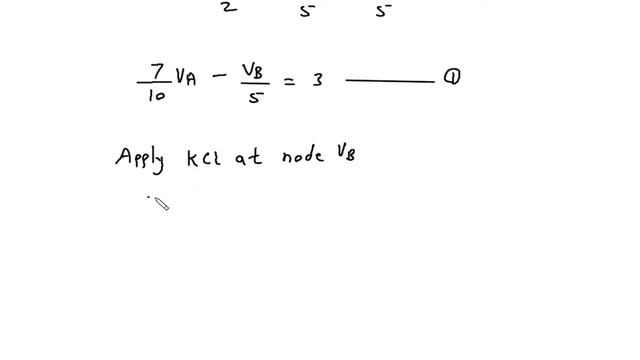 2 5 5
7/10 VA - VB/5 = 3 ——— ①
Apply KCL at node VB